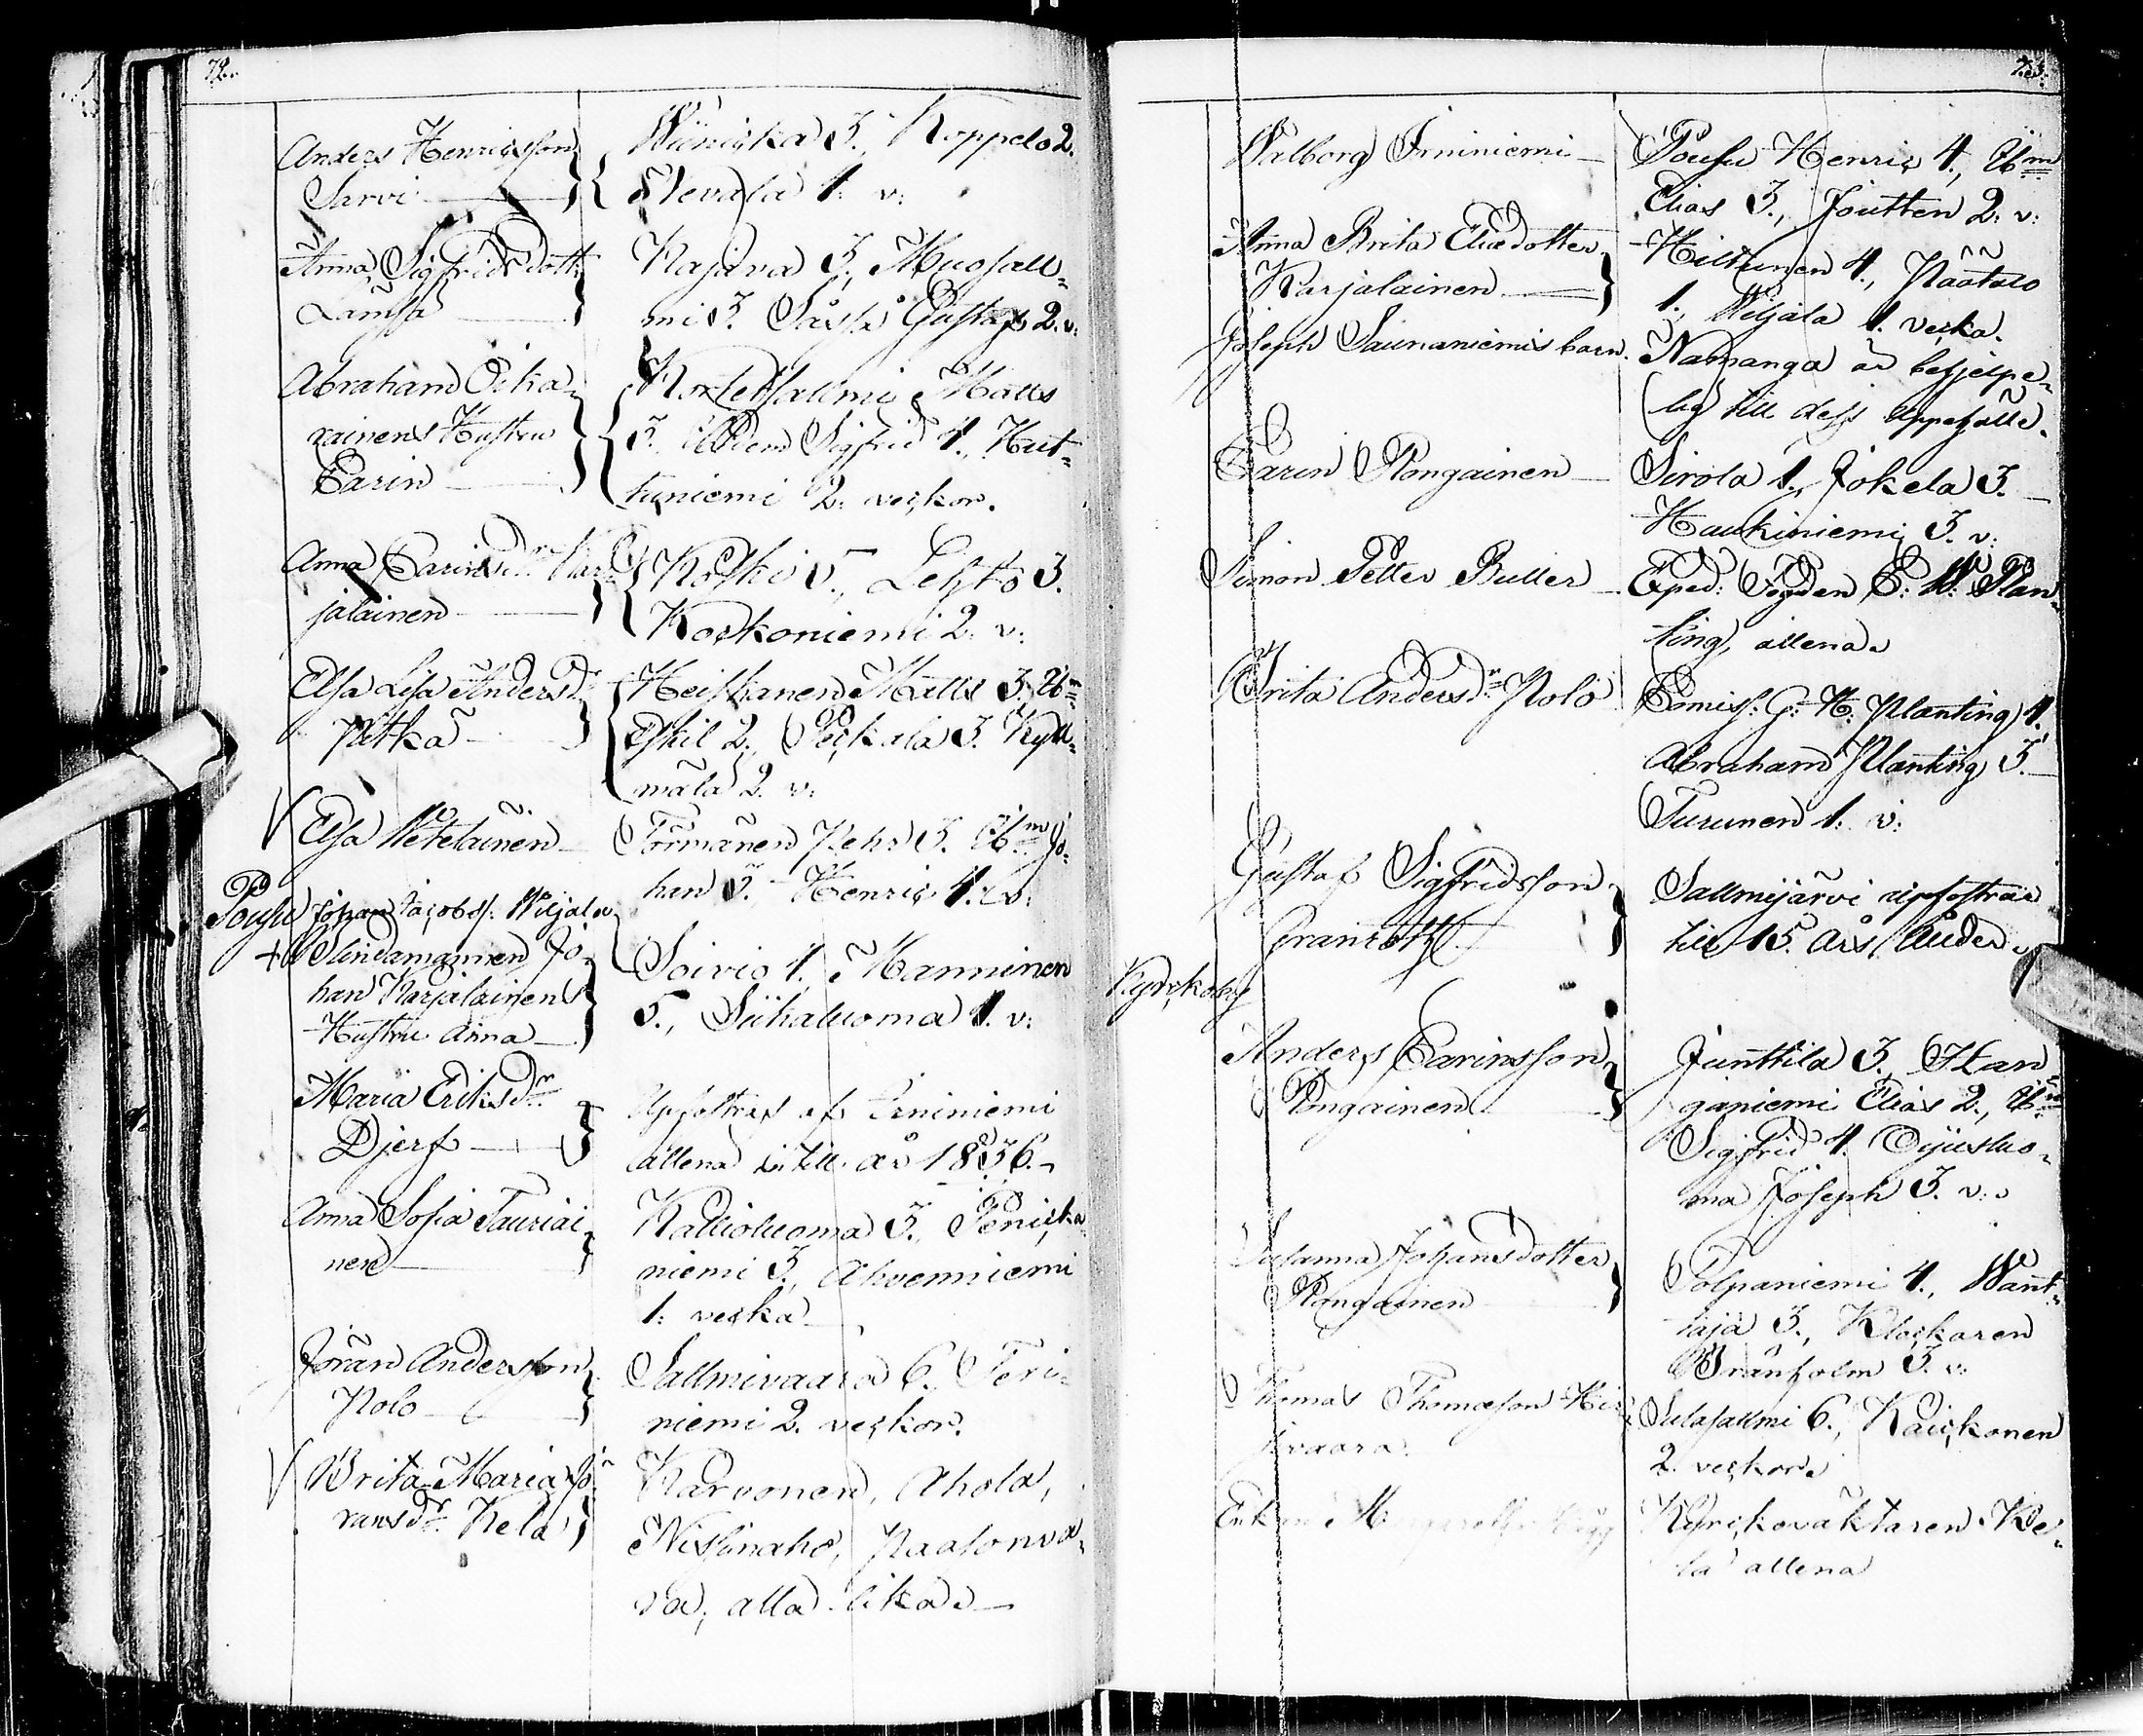 72.
Anders Henricsson
Sarvi
Wänickä 3., Koppelo 2.
Nevala 1. v:
Anna Sigfridsdott:
Lämsä
Kajava 3., Muosall-
mi 3. Säsä Gustaf 2. v:
Abraham Oika-
rainens Hustru
Carin
Kortetsallmi Matts
3. Sigfrid 4., Hut-
tuniemi 2. veckor.
Anna Carins Dr. Kar-
jalainen
Koski 5., Lehto 3.
Korkoniemi 2. v:
Elsa Lisa Andersd:
Pitkä
Heiskanen Matts 3. D:m
Eskil 2., Peckala 3. Kyll-
mälä 2. v:
Elsa Weteläinen
Törmänen Pehr 3. D:m Jo-
han 3. Henric 4. v:
Pousu Johan Jacobs. Wiljala
+ Blindamannen Jo-
han Karjalainens
Hustru Anna
Soivio 4., Manninen
5., Siikaluoma 1. v:
Maria Eriksdr.
Djerf
Upfostras af Irniniemi
allena intill år 1836.
Anna Sofia Tauriai-
nen
Kallioluoma 3., Penicka-
niemi 3., Ahvenniemi
1. vecka
Jöran Andersson
Polo
Sallmivaara 6., Teri-
niemi 2. veckor.
Brita Maria Jö-
ransdr. Kela
Karvonen, Ahola,
Nissinaho, Paatonva-
ra, alla lika.
73.
Walborg Irniniemi
Pousu Henric 4., D:m
Elias 3., Joutten 2. v:
Anna Brita Eliædotter
Karjalainen
Hiltunen 4., Päätalo
1., Wiljala 1. vecka.
Joseph Saunaniemis barn.
Namanga är behjelpe-
lig till dess uppehälle.
Carin Rongainen
Sirola 1., Jokela 3.
Haukiniemi 3. v:
Simon Petter Buller
Exped: Fogden C: W: Plan-
ting, allena.
Brita Andersdr. Polo
Comiss. G: H: Planting 4.
Abraham Planting 3.
Turunen 1. v:
Gustaf Sigfridsson
Granroth
Sallmijärvi upfostrar
till 15. års ålder.
Kyrckoby
Anders Carinsson
Rongainen
Junttila 3.
ganiemi Elias 2., D:m
Sigfrid 4. Öijusluo-
ma Joseph 3. v:
Susanna Johansdotter
Rongainen
Polpaniemi 4., Wänt-
täjä 3., Klockaren
Granholm 3. v:
Thomas Thomasson
Sulasallmi 6., Kaickonen
2. veckor.
Enkan
Kyrckovaktaren Ke-
la allena